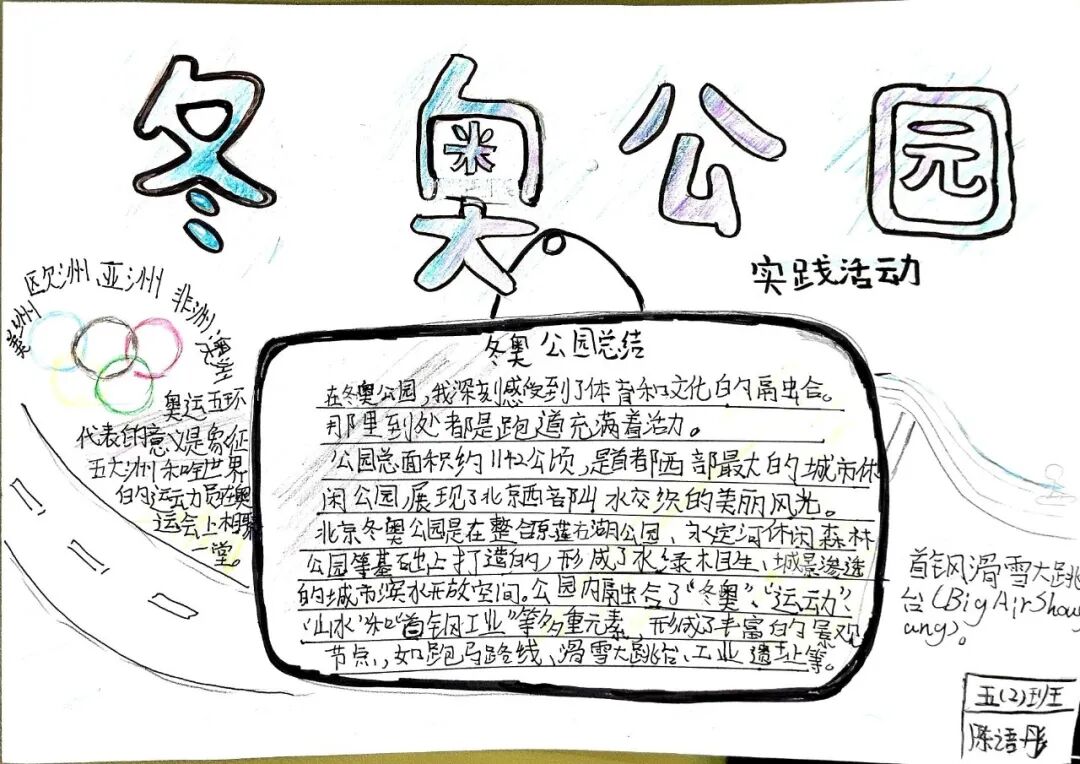 冬奥公园
实践活动
美洲 欧洲、亚洲 非洲、澳
奥运五环
代表的意义是象征
五大洲和全世界
的运动员在奥
运会上相聚
一堂。
冬奥公园总结
在冬奥公园，我深刻感受到了体育和文化的融合。
那里到处都是跑道充满着活力。
公园总面积约1142公顷，是首都西部最大的城市休
闲公园，展现了北京西部山水交织的美丽风光。
北京冬奥公园是在整合原莲石湖公园、永定河休闲森林
公园等基础上打造的，形成了水绿相生、城景渗透
的城市滨水开放空间。公园内融合了“冬奥”、“运动”、
“山水”和“首钢工业”等多重元素，形成了丰富的景观
节点，如跑马路线、滑雪大跳台、工业遗址等。
首钢滑雪大跳
台（Big Air Shou
gang）。
五(2)班
陈语彤